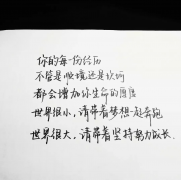 你的每一份经历
不管是顺境还是坎坷
都会增加你生命的厚度
世界很小，请带着梦想一起奔跑
世界很大，请带着坚持努力成长.